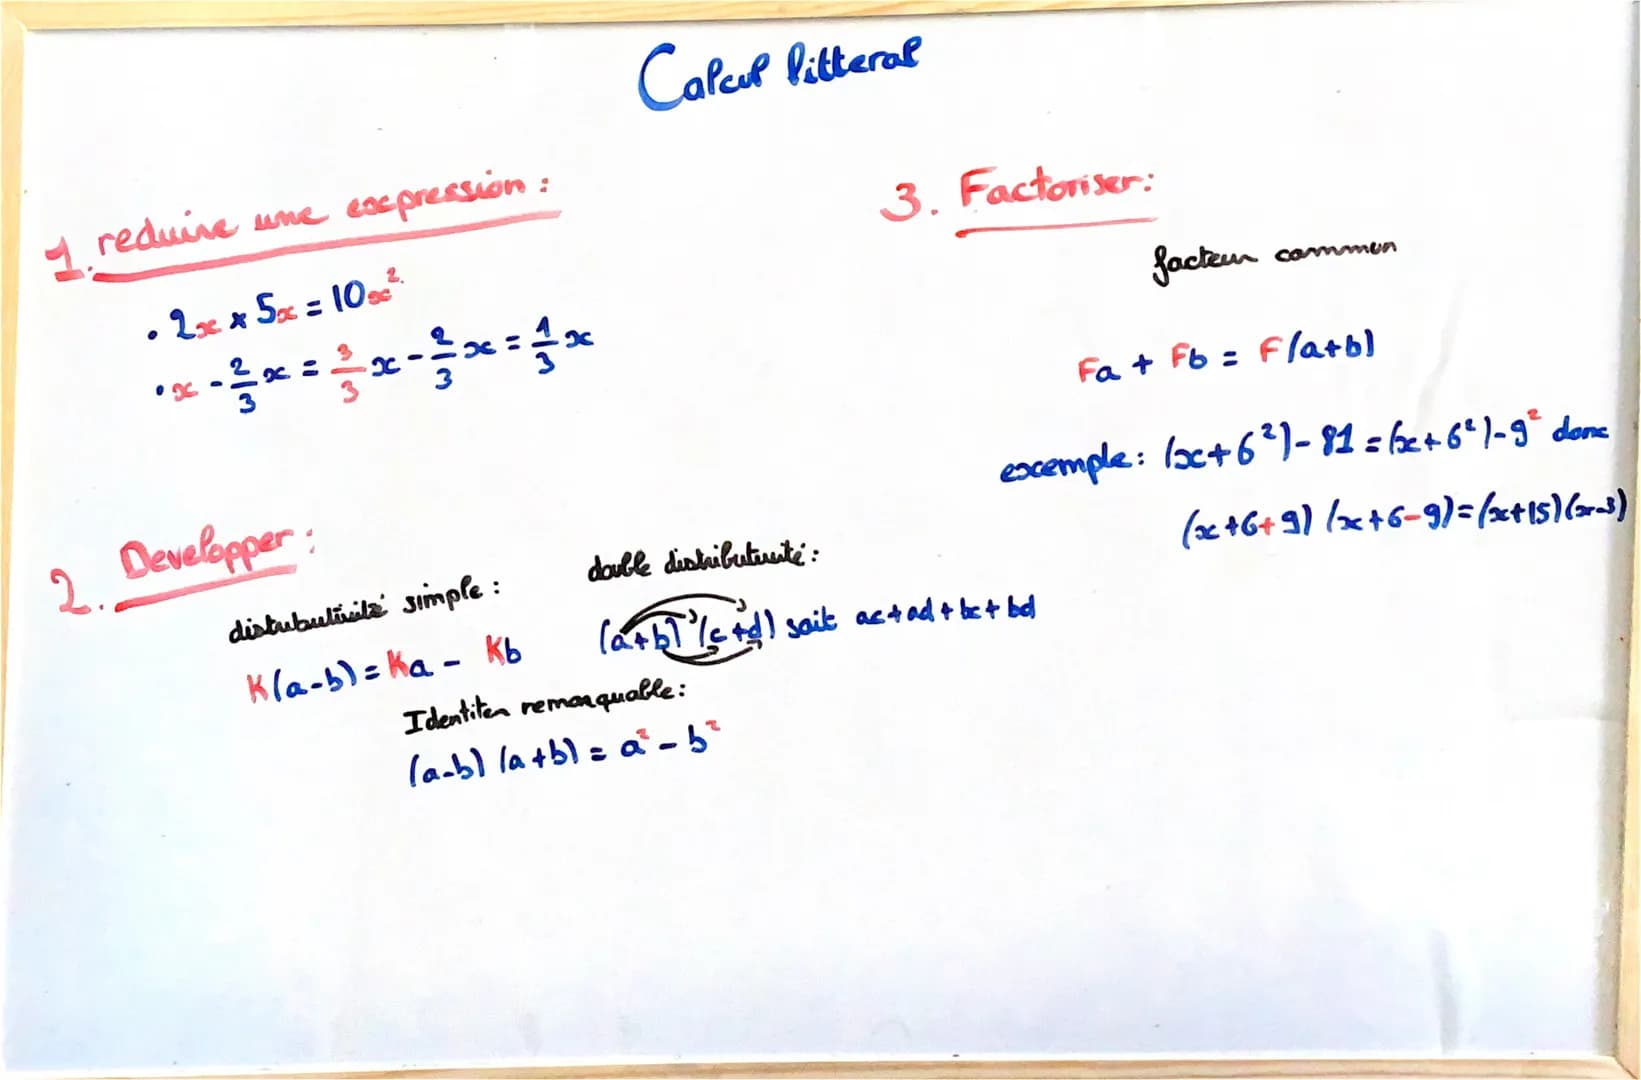 Calcul litteral
1. reduire une expression :
• 2x × 5x = 10x²
• x - 2/3 x = 3/3 x - 2/3 x = 1/3 x
2. Developper :
distributivité simple :
K(a-b) = Ka - Kb
double distributivité :
(a+b) (c+d) soit ac + ad + bc + bd
Identiter remarquable :
(a-b) (a+b) = a² - b²
3. Factoriser :
facteur commun
Fa + Fb = F(a+b)
exemple : (x+6²) - 81 = (x+6²) - 9² donc
(x+6+9) (x+6-9) = (x+15) (x-3)